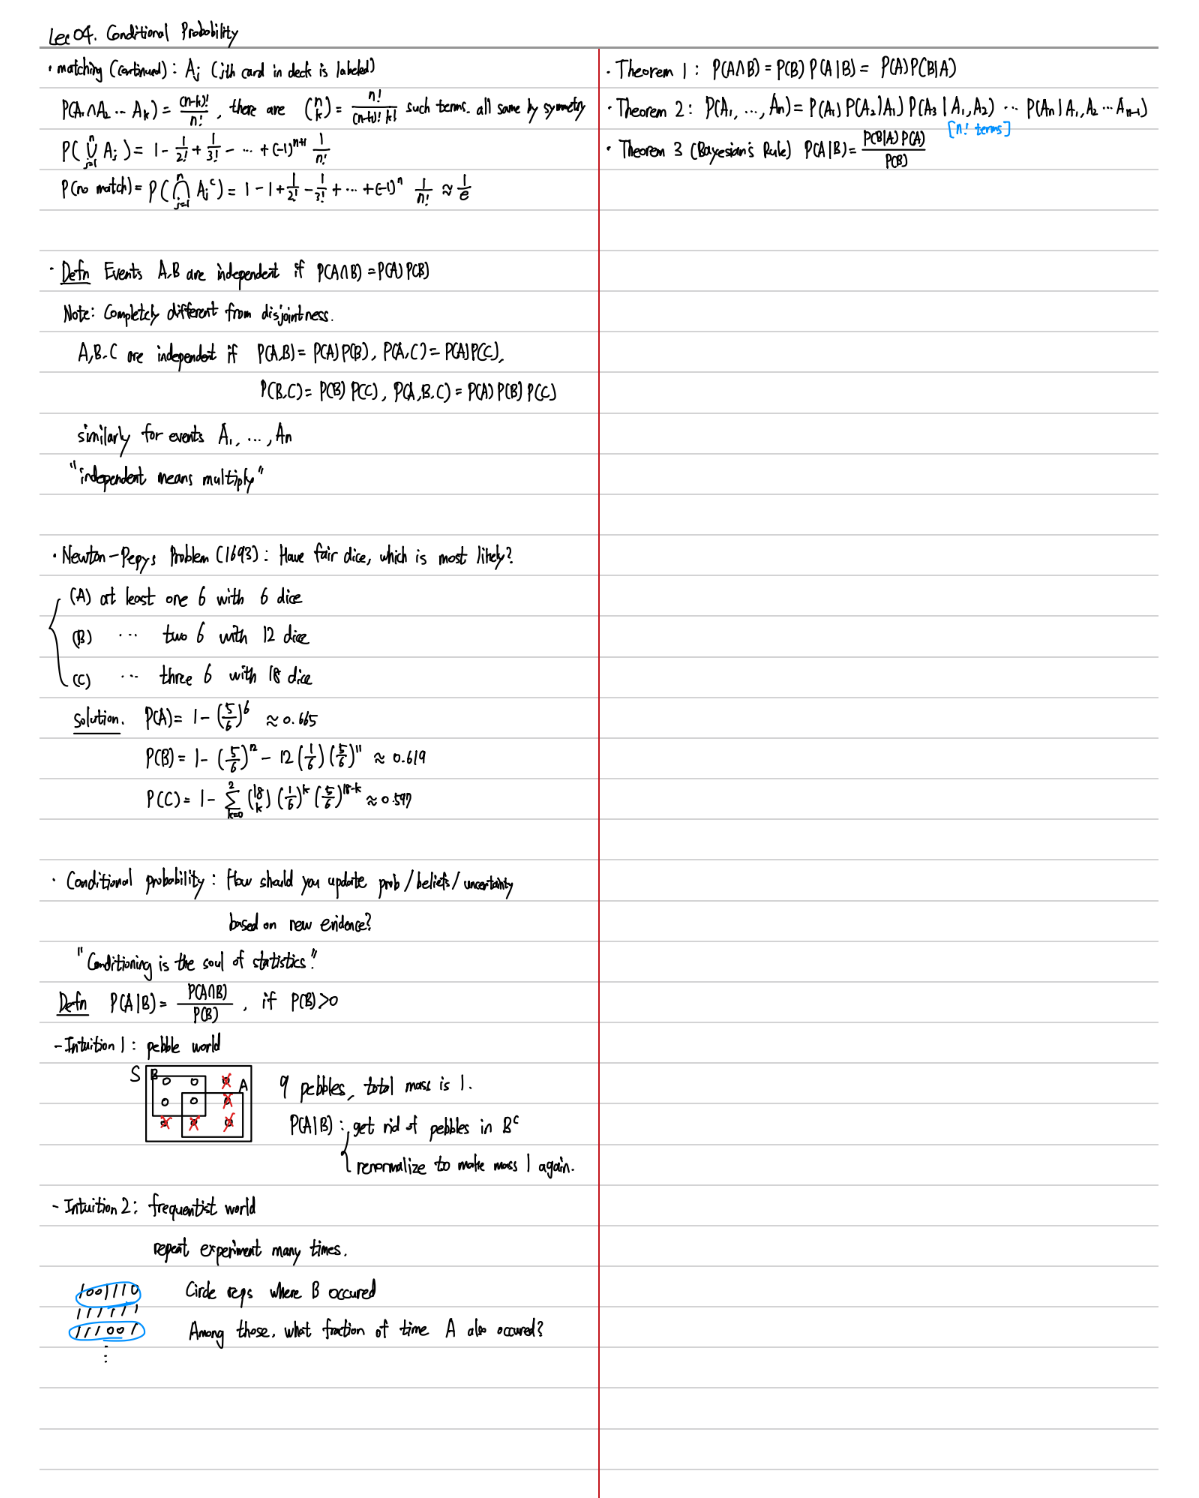 Lec 04. Conditional Probability
· matching (continued) : Aj (jth card in deck is labeled)
P(A₁∩A₂ ... Aₖ) = (n-k)!/n! , there are (n k) = n!/((n-k)! k!) such terms. all same by symmetry
P(⋃ⱼ₌₁ⁿ Aj) = 1 - 1/2! + 1/3! - ... + (-1)ⁿ⁺¹ 1/n!
P(no match) = P(⋂ⱼ₌₁ⁿ Ajᶜ) = 1 - 1 + 1/2! - 1/3! + ... + (-1)ⁿ 1/n! ≈ 1/e
· Defn Events A,B are independent if P(A∩B) = P(A) P(B)
Note: Completely different from disjointness.
A,B,C are independent if P(A,B) = P(A) P(B), P(A,C) = P(A)P(C),
P(B,C) = P(B) P(C), P(A,B,C) = P(A) P(B) P(C)
similarly for events A₁, ..., An
"independent means multiply"
· Newton-Pepys Problem (1693) : Have fair dice, which is most likely?
(A) at least one 6 with 6 dice
(B) ... two 6 with 12 dice
(C) ... three 6 with 18 dice
Solution. P(A) = 1 - (5/6)⁶ ≈ 0.665
P(B) = 1 - (5/6)¹² - 12 (1/6) (5/6)¹¹ ≈ 0.619
P(C) = 1 - Σₖ₌₀² (18 k) (1/6)ᵏ (5/6)¹⁸⁻ᵏ ≈ 0.597
· Conditional probability : How should you update prob/beliefs/uncertainty
based on new evidence?
"Conditioning is the soul of statistics."
Defn P(A|B) = P(A∩B)/P(B) , if P(B)>0
- Intuition 1 : pebble world
S B A
9 pebbles, total mass is 1.
P(A|B) : get rid of pebbles in Bᶜ
renormalize to make mass 1 again.
- Intuition 2 : frequentist world
repeat experiment many times.
1001110 Circle reps where B occured
1111111
1111001 Among those, what fraction of time A also occured?
⋮
· Theorem 1 : P(A∩B) = P(B) P(A|B) = P(A) P(B|A)
· Theorem 2 : P(A₁, ..., An) = P(A₁) P(A₂|A₁) P(A₃|A₁,A₂) ... P(An|A₁,A₂ ... An-1)
[n! terms]
· Theorem 3 (Bayesian's Rule) P(A|B) = P(B|A) P(A)/P(B)